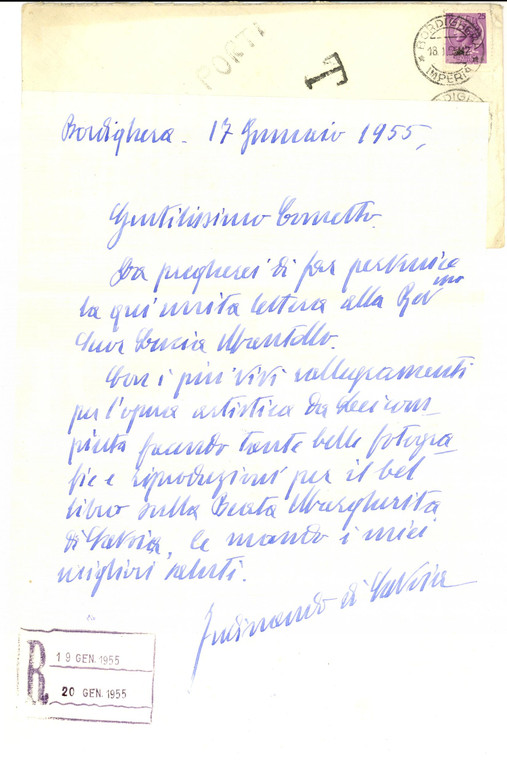 PORTI
T
25
BORDIGHERA
18.1.55
IMPERIA
Bordighera - 17 Gennaio 1955,
Gentilissimo Cornetto.
La pregherei di far pervenire
la qui unita lettera alla Rev ma
Suor Lucia Mantello.
Con i più vivi rallegramenti
per l'opera artistica da Lei com-
piuta facendo tante belle fotogra-
fie e riproduzioni per il bel
libro sulla Beata Margherita
di Savoia, le mando i miei
migliori saluti.
Ferdinando di Savoia
R
19 GEN. 1955
20 GEN. 1955